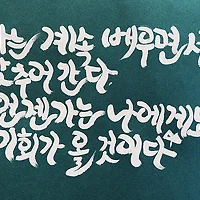 나는 계속 배우면서
갖추어 간다.
언젠가는 나에게도
기회가 올 것이다